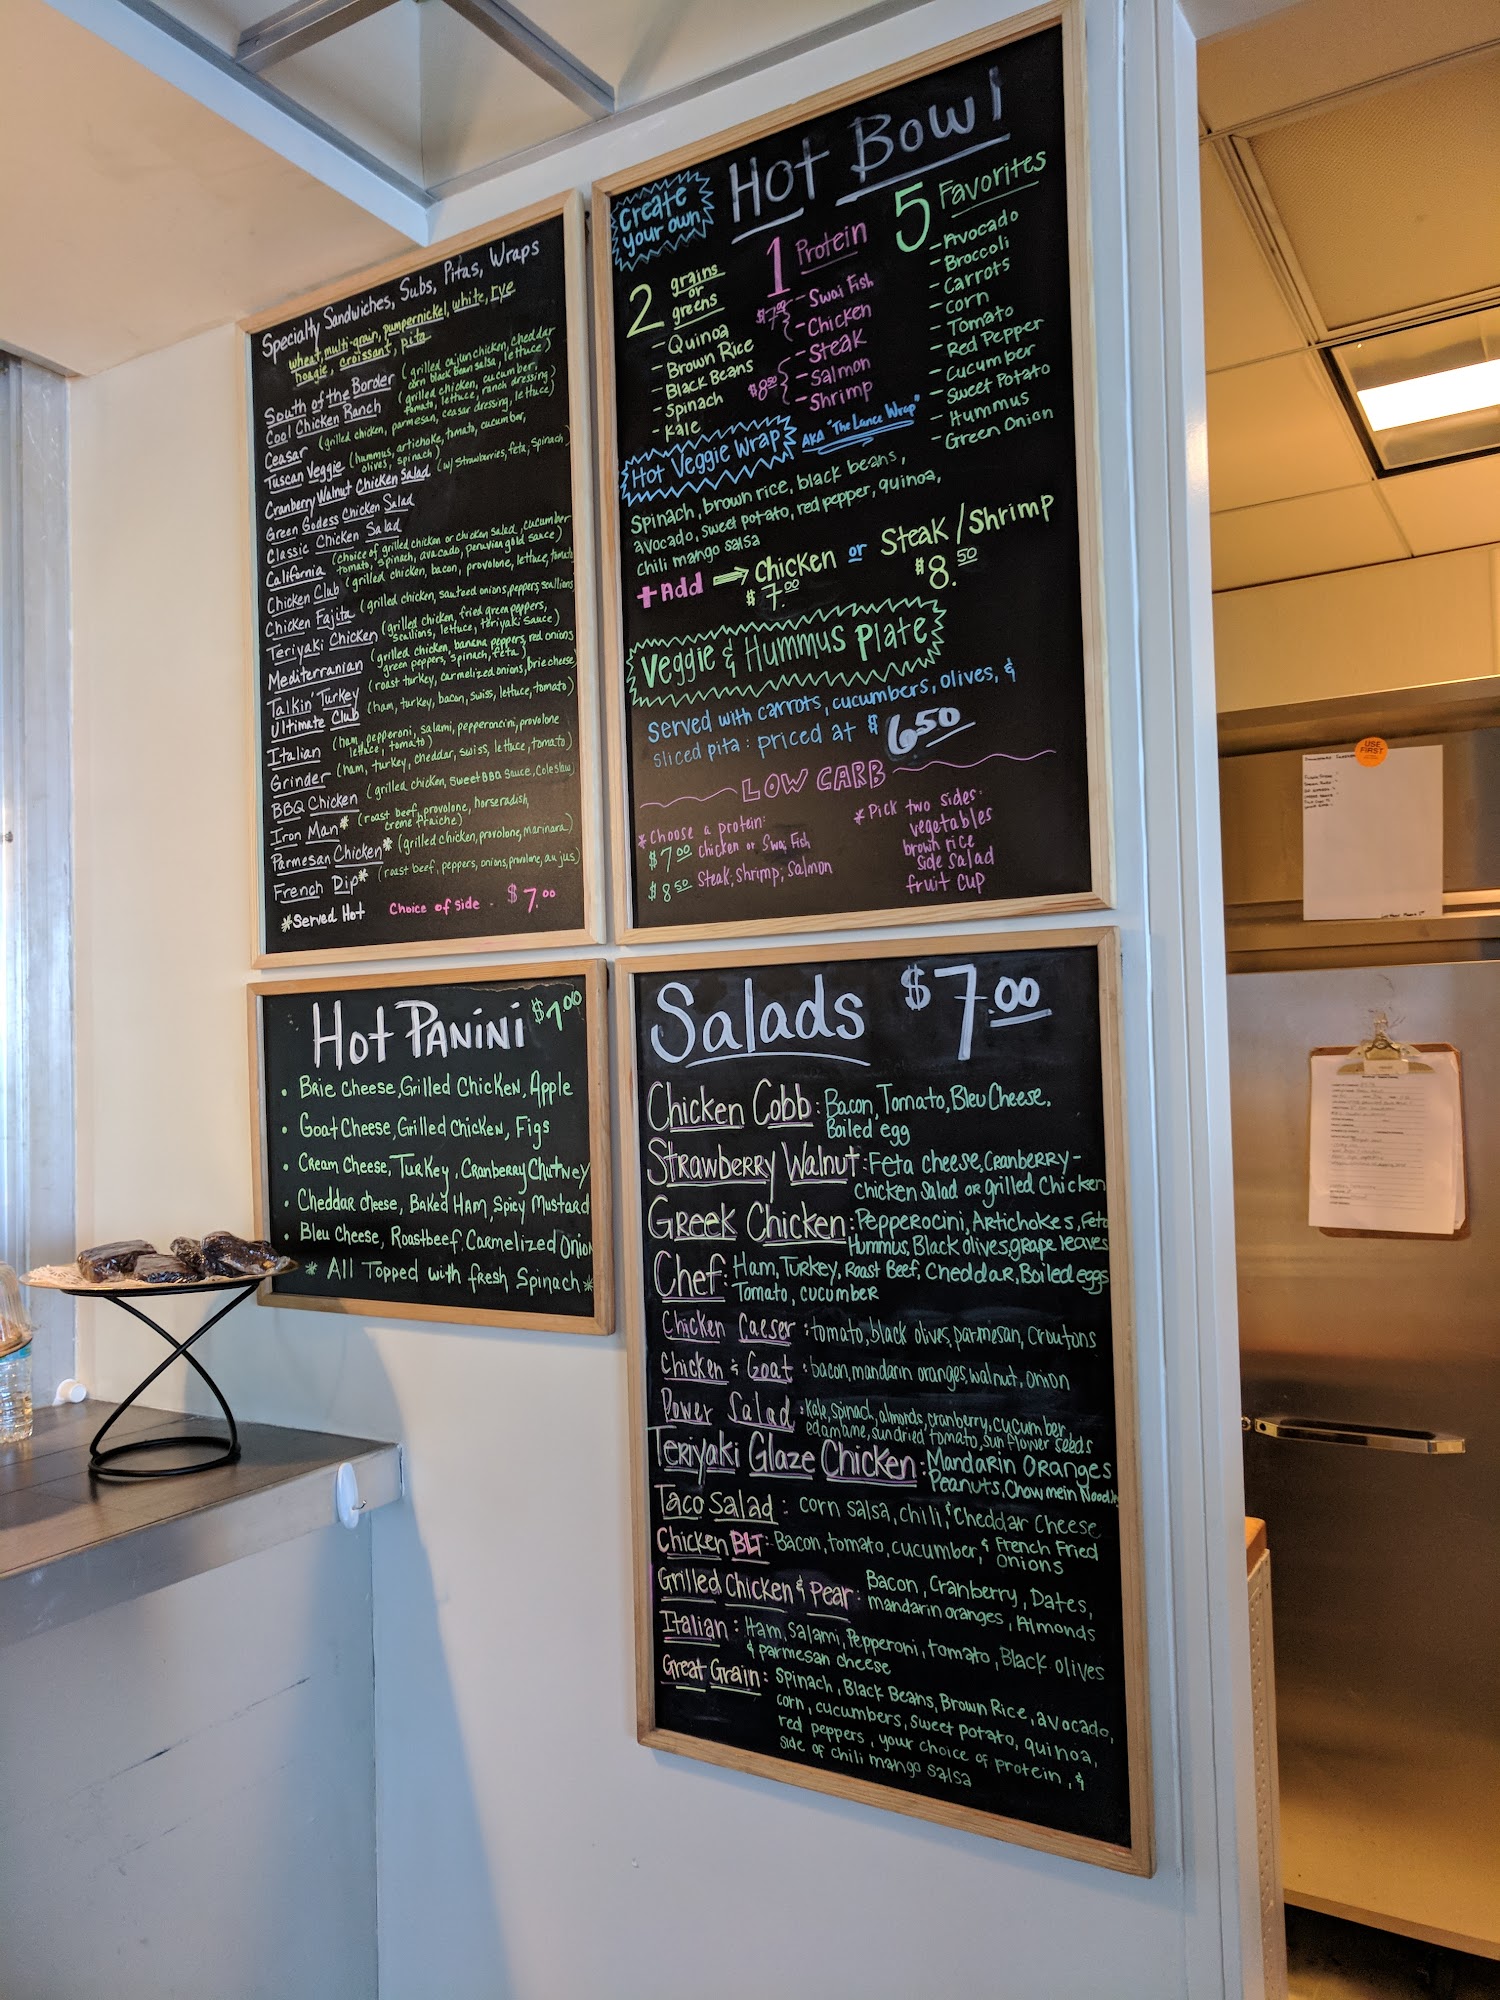 Specialty Sandwiches, Subs, Pitas, Wraps
wheat, multi-grain, pumpernickel, white, rye
hoagie, croissant, pita
South of the Border (grilled cajun chicken, cheddar
corn black bean salsa, lettuce)
Cool Chicken Ranch (grilled chicken, cucumber,
tomato, lettuce, ranch dressing)
Ceasar (grilled chicken, parmesan, ceasar dressing, lettuce)
Tuscan Veggie (hummus, artichoke, tomato, cucumber,
olives, spinach)
Cranberry Walnut Chicken Salad (w/ strawberries, feta, spinach)
Green Godess Chicken Salad
Classic Chicken Salad
California (choice of grilled chicken or chicken salad, cucumber
tomato, spinach, avacado, peruvian gold sauce)
Chicken Club (grilled chicken, bacon, provolone, lettuce, tomato
Chicken Fajita (grilled chicken, sauteed onions, peppers, scallions
Teriyaki Chicken (grilled chicken, fried green peppers,
scallions, lettuce, teriyaki sauce)
Mediterranean (grilled chicken, banana peppers, red onions
green peppers, spinach, feta)
Talkin' Turkey (roast turkey, carmelized onions, brie cheese)
Ultimate Club (ham, turkey, bacon, swiss, lettuce, tomato)
Italian (ham, pepperoni, salami, pepperoncini, provolone
lettuce, tomato)
Grinder (ham, turkey, cheddar, swiss, lettuce, tomato)
BBQ Chicken (grilled chicken, sweet BBQ sauce, Coleslaw
Iron Man* (roast beef, provolone, horseradish,
creme fraiche)
Parmesan Chicken* (grilled chicken, provolone, marinara)
French Dip* (roast beef, peppers, onions, provolone, au jus)
*Served Hot Choice of side - $7.00
Hot Bowl
Create
your own
2 grains
or
greens
- Quinoa
- Brown Rice
- Black Beans
- Spinach
- Kale
1 Protein
$7.00 - Swai Fish
- Chicken
$8.50 - Steak
- Salmon
- Shrimp
5 Favorites
- Avocado
- Broccoli
- Carrots
- Corn
- Tomato
- Red Pepper
- Cucumber
- Sweet Potato
- Hummus
- Green Onion
Hot Veggie Wrap AKA "The Lance Wrap"
Spinach, brown rice, black beans,
avocado, sweet potato, red pepper, quinoa,
chili mango salsa
+Add ⟹ Chicken or Steak/Shrimp
$7.00 $8.50
Veggie & Hummus Plate
Served with carrots, cucumbers, olives, &
sliced pita: priced at $6.50
LOW CARB
*Choose a protein:
$7.00 chicken or Swai Fish
$8.50 Steak, Shrimp, Salmon
*Pick two sides:
vegetables
brown rice
side salad
fruit cup
Hot Panini $7.00
• Brie Cheese, Grilled Chicken, Apple
• Goat Cheese, Grilled Chicken, Figs
• Cream Cheese, Turkey, Cranberry Chutney
• Cheddar cheese, Baked Ham, Spicy Mustard
• Bleu Cheese, Roastbeef, Carmelized Onion
* All Topped with fresh Spinach*
Salads $7.00
Chicken Cobb: Bacon, Tomato, Bleu Cheese,
Boiled egg
Strawberry Walnut: Feta cheese, Cranberry-
Chicken Salad or grilled Chicken
Greek Chicken: Pepperocini, Artichokes, Feta
Hummus, Black olives, grape leaves
Chef: Ham, Turkey, Roast Beef, Cheddar, Boiled eggs
Tomato, cucumber
Chicken Caeser: tomato, black olives, parmesan, croutons
Chicken & Goat: bacon, mandarin oranges, walnut, onion
Power Salad: Kale, spinach, almonds, cranberry, cucumber,
edamame, sundried tomato, sunflower seeds
Teriyaki Glaze Chicken: Mandarin Oranges
Peanuts, Chow mein Noodles
Taco Salad: corn salsa, chili, & Cheddar cheese
Chicken BLT: Bacon, tomato, cucumber, & French Fried
onions
Grilled Chicken & Pear: Bacon, Cranberry, Dates,
mandarin oranges, Almonds
Italian: Ham, Salami, Pepperoni, tomato, Black olives
& parmesan cheese
Great Grain: Spinach, Black Beans, Brown Rice, avocado,
corn, cucumbers, sweet potato, quinoa,
red peppers, your choice of protein, &
side of chili mango salsa
USE
FIRST